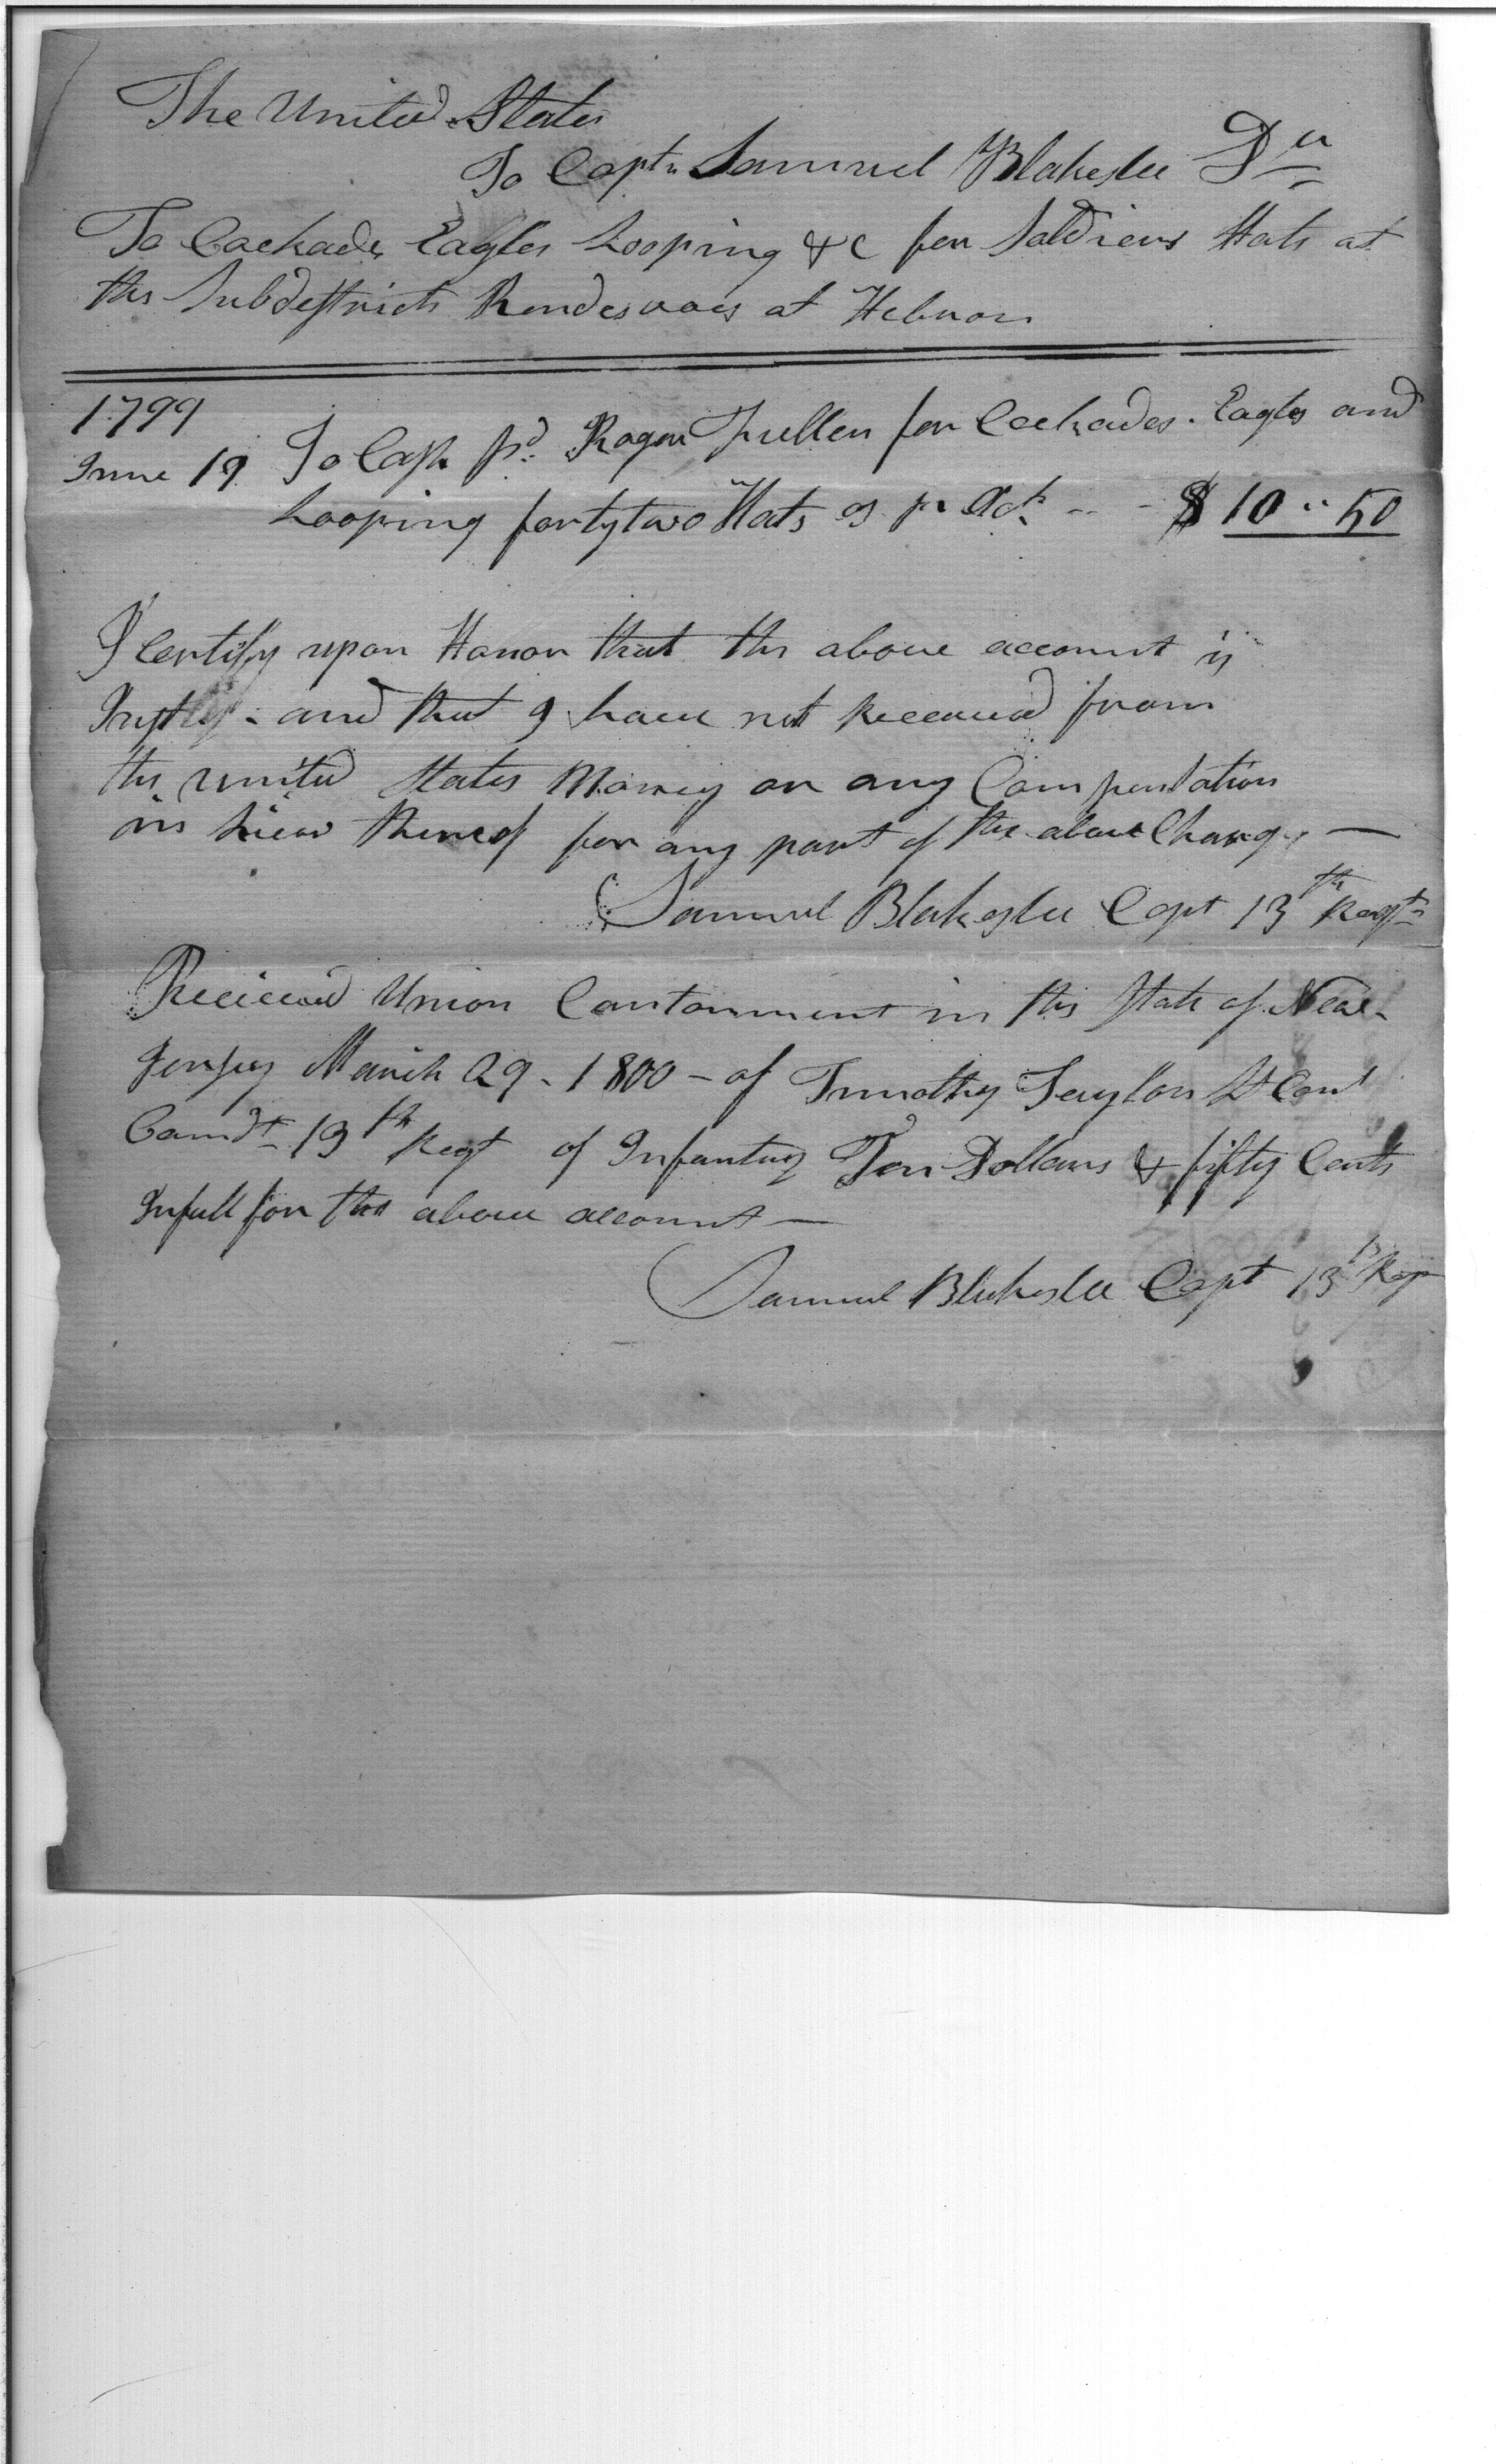 The United States
To Captn Samuel Blakeslee Dr
To Cockade Eagles Looping &c for Soldiers Hats at
the Subdistrict Rendesvous at Hebron
1799
June 19 To Cash pd Roger Fuller for Cockades Eagles and
Looping fortytwo Hats as pr Act $ 10 " 50
I Certify upon Honor that the above account is
Just and that I have not Received from
the United States Money or any Compensation
in Liew thereof for any part of the above Charge —
Samuel Blakeslee Capt 13th Regt
Received Union Cantonment in the State of New-
Jersey March 29 - 1800 - of Timothy Taylor Lt Conl
Comdt 13th Regt of Infantry Ten Dollars & fifty Cents
In full for the above account —
Samuel Blakeslee Capt 13th Reg